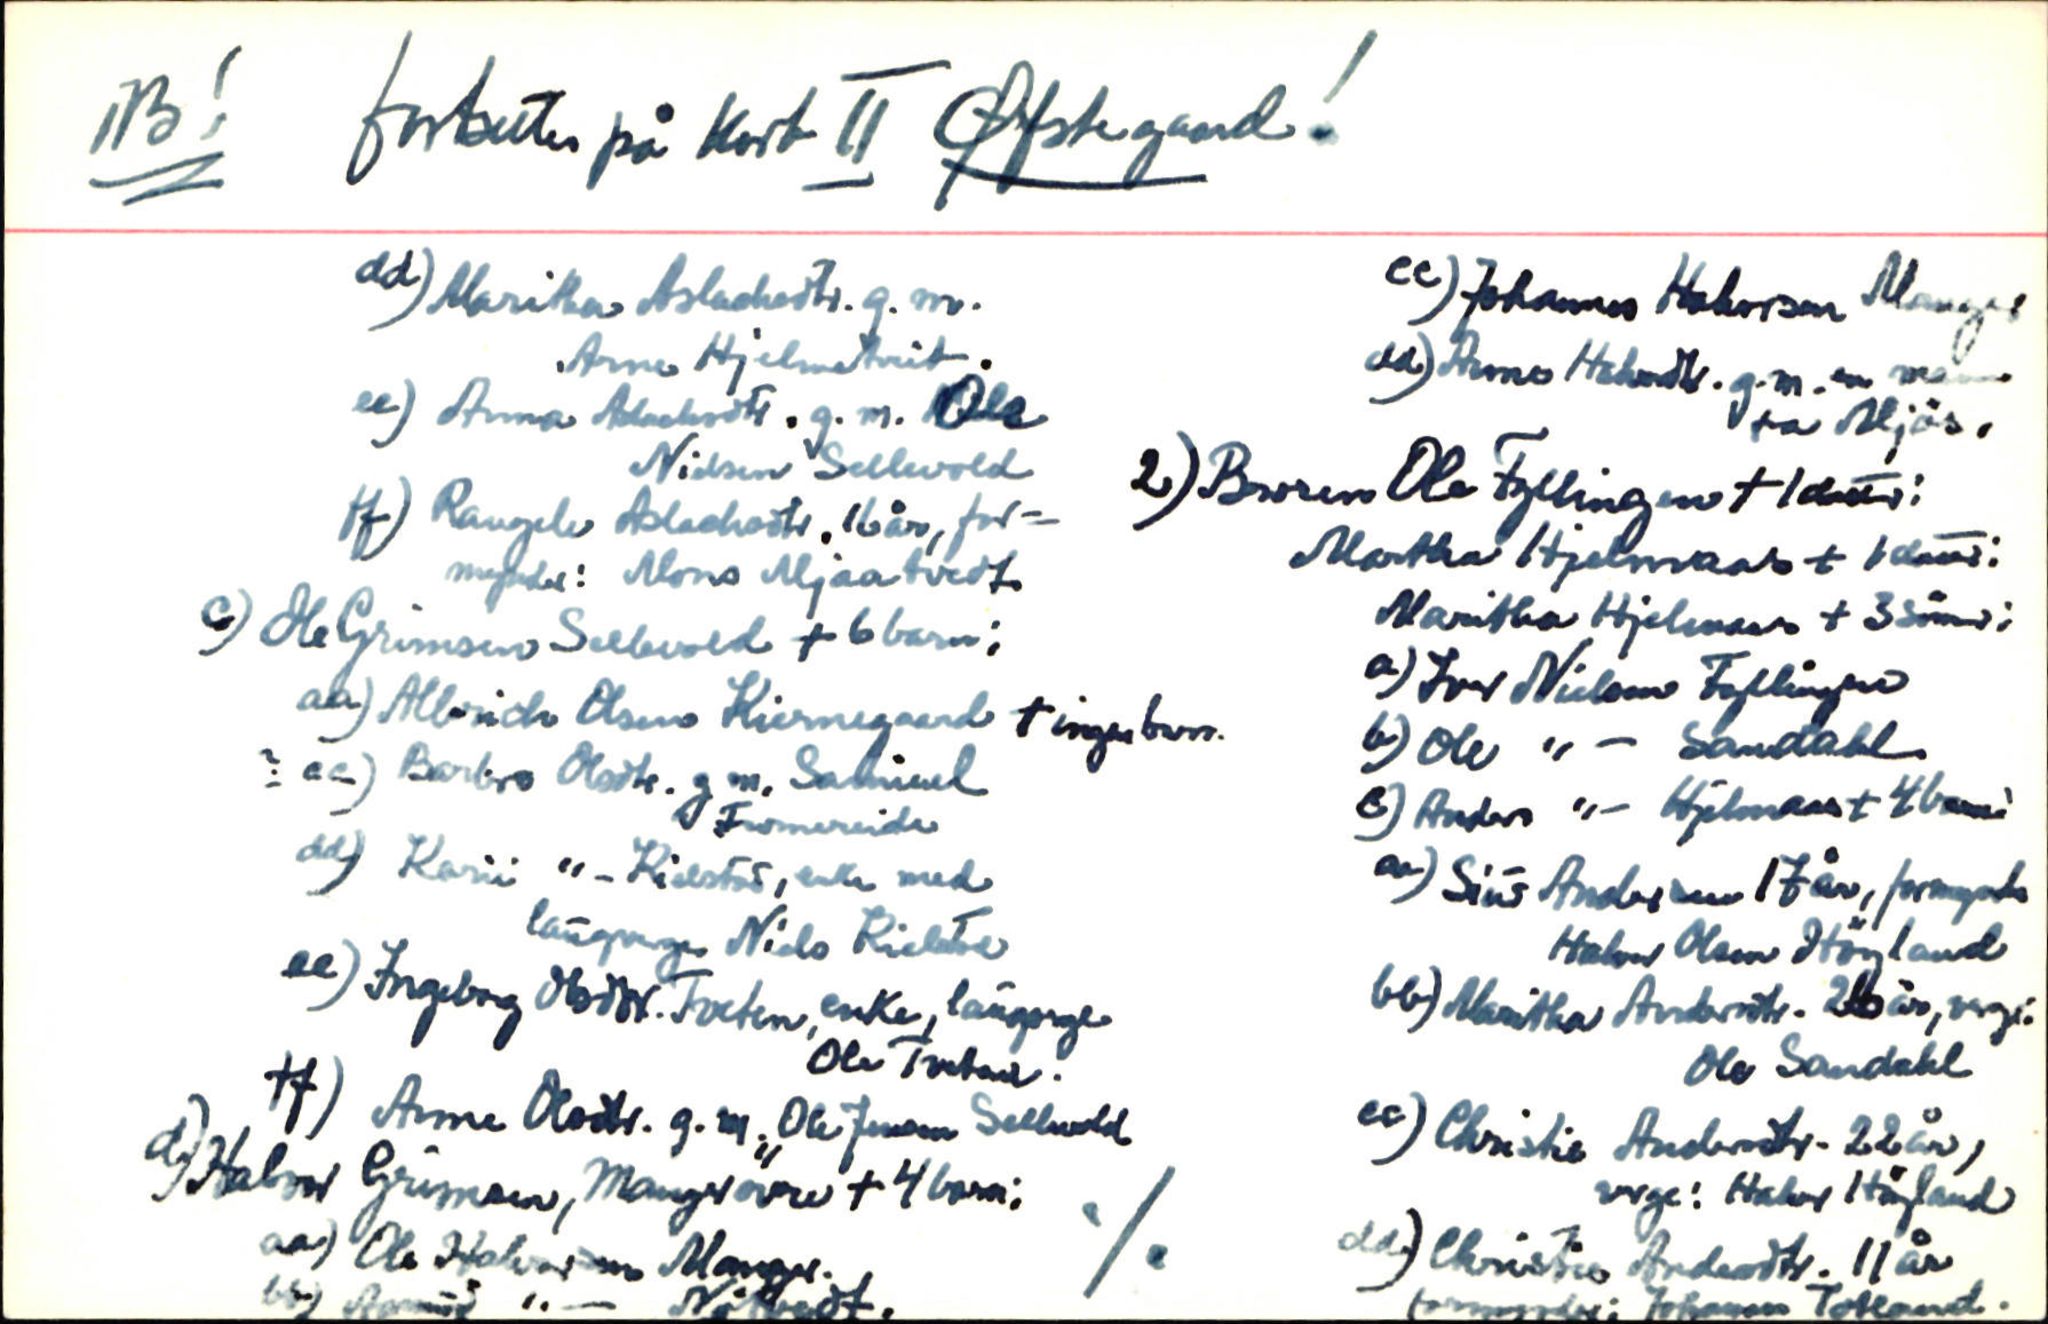 NB! fortsetter på kort II Øfstegaard!
dd) Maritha Aslachsdtr. g. m.
Arne Hjelmetveit.
ee) Anna Aslachsdtr. g. m. Ole
Nielsen Sellevold
ff) Rangele Aslachsdtr. 16 år, for-
mynder: Mons Mjaatvedt.
c) Ole Grimsen Sellevold + 6 barn:
aa) Albrich Olsen Kiernegaard + ingen barn.
? cc) Barbro Olsdtr. g. m. Samuel
Fromereide
dd) Karii "- Kielstrø, enke med
laugverge Niels
ee) Ingeborg Olsdtr. Tveten, enke, laugverge
Ole Tveten.
ff) Anne Olsdtr. g. m. Ole Jensen Sellevold
d) Halvor Grimsen, Manger øvre + 4 barn:
aa) Ole Halvorsen Manger.
bb) "-
./.
cc) Johannes Halvorsen Manger
dd) Anne Halvordtr. g. m. en mann
fra Mjøs.
2) Broren Ole Fyllingen + 1 datter:
Martha Hjelmaas + 1 datter:
Maritha Hjelmaas + 3 sönner:
a) Iver Nielsen Fyllingen
b) Ole "- Sandahl
c) Anders "- Hjelmaas + 4 barn:
aa) Siüs Andersen 17 år, formynder
Halvor Olsen Höyland
bb) Maritha Andersdtr. 26 år, verge:
Ole Sandahl
cc) Christie Andersdtr. 22 år,
verge: Halvor Höyland
dd) Christie Andersdtr. 11 år
formynder: Johannes Totland.